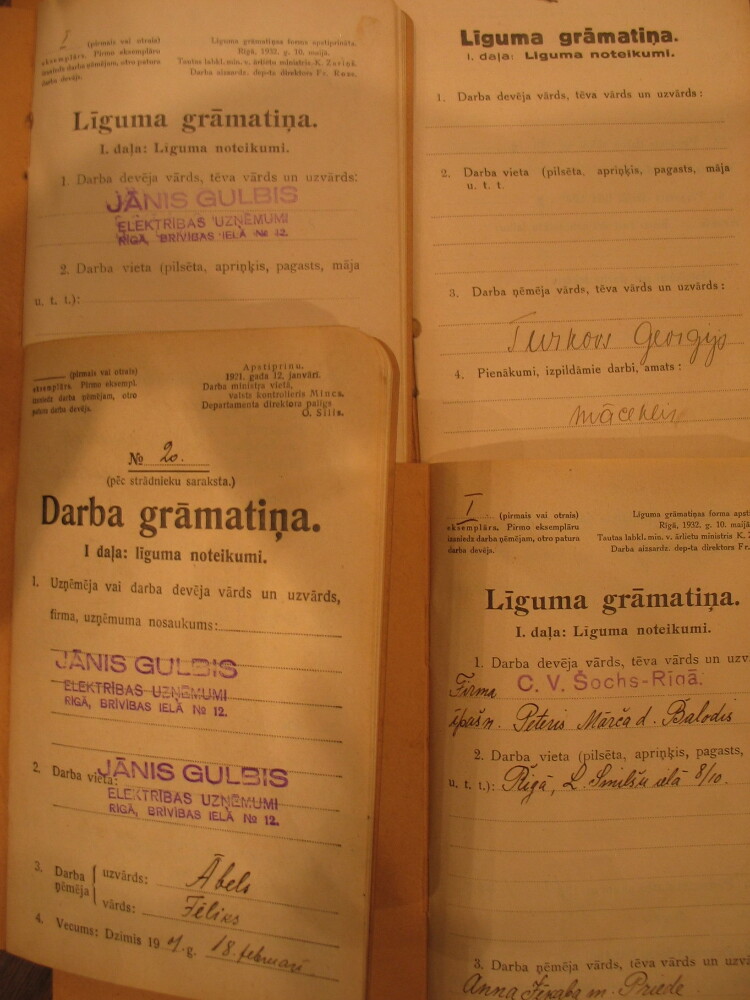 I (pirmais vai otrais)
eksemplārs. Pirmo eksemplāru
izsniedz darba ņēmējam, otro patura
darba devējs.
Līguma grāmatiņas forma apstiprināta.
Rīgā, 1932. g. 10. maijā.
Tautas labkl. min. v. ārlietu ministris K. Zariņš.
Darba aizsardz. dep-ta direktors Fr. Roze.
Līguma grāmatiņa.
I. daļa: Līguma noteikumi.
1. Darba devēja vārds, tēva vārds un uzvārds:
JĀNIS GULBIS
ELEKTRĪBAS UZŅĒMUMI
RĪGĀ, BRĪVĪBAS IELĀ № 12.
2. Darba vieta (pilsēta, apriņķis, pagasts, māja
u. t. t.):
Līguma grāmatiņa.
I. daļa: Līguma noteikumi.
1. Darba devēja vārds, tēva vārds un uzvārds:
2. Darba vieta (pilsēta, apriņķis, pagasts, māja
u. t. t.
3. Darba ņēmēja vārds, tēva vārds un uzvārds:
Turkovs Georgijs
4. Pienākumi, izpildāmie darbi, amats:
māceklis
(pirmais vai otrais)
eksemplārs. Pirmo eksempl.
izsniedz darba ņēmējam, otro
patur darba devējs.
Apstiprinu.
1921. gada 12. janvārī.
Darba ministra vietā,
valsts kontrolieris Mincs.
Departamenta direktora palīgs
O. Silis.
№ 20.
(pēc strādnieku saraksta.)
Darba grāmatiņa.
I daļa: līguma noteikumi.
1. Uzņēmēja vai darba devēja vārds un uzvārds,
firma, uzņēmuma nosaukums:
JĀNIS GULBIS
ELEKTRĪBAS UZŅĒMUMI
RĪGĀ, BRĪVĪBAS IELĀ № 12.
2. Darba vieta:
JĀNIS GULBIS
ELEKTRĪBAS UZŅĒMUMI
RĪGĀ, BRĪVĪBAS IELĀ № 12.
3. Darba ņēmēja
uzvārds: Ābels
vārds: Fēliks
4. Vecums: Dzimis 19 g. 18. februarī
I (pirmais vai otrais)
eksemplārs. Pirmo eksemplāru
izsniedz darba ņēmējam, otro patura
darba devējs.
Līguma grāmatiņas forma apsti
Rīgā, 1932. g. 10. maijā.
Tautas labkl. min. v. ārlietu ministris K. Z
Darba aizsardz. dep-ta direktors Fr.
Līguma grāmatiņa.
I. daļa: Līguma noteikumi.
1. Darba devēja vārds, tēva vārds un uzv
Firma C. V. Šochs-Rīgā.
īpašn. Pēteris Mārča d. Balodis
2. Darba vieta (pilsēta, apriņķis, pagasts,
u. t. t.): Rīgā, L. Smilšu ielā 8/10.
3. Darba ņēmēja vārds, tēva vārds un uzvā
Anna Jēkaba m. Priede